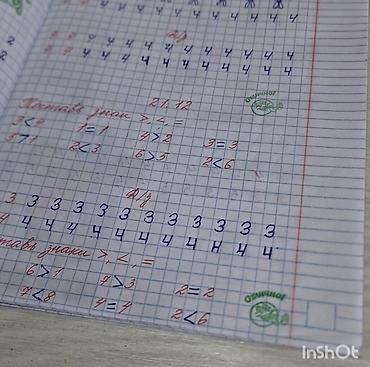 4 4 4 4 4 4 4 4
Д/з
4 4 4 4 4 4 4 4 4 4
4 4 4 4 4 4 4 4 4 4
21.12
Поставь знак >, <, =
1=1 4>2 3=3
5>1 2<3 6>5 2<6
Отлично!
Д/з
3 3 3 3 3 3 3 3 3 3 3
4 4 4 4 4 4 4 4 4 4 4
тавь знаки >, <, =
6>1 4>3 2=2
4<8 4=4 2<6
Отлично!
InShOt